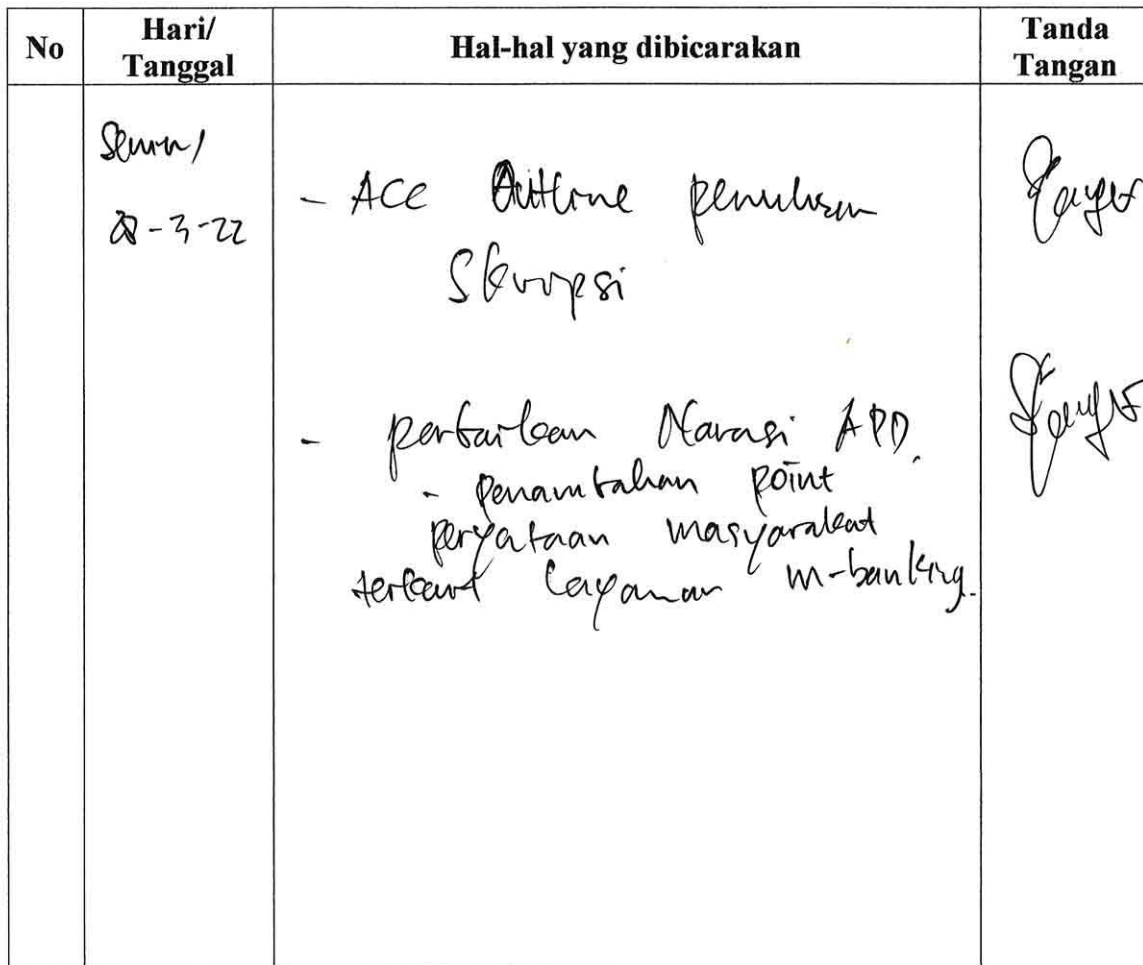 No
Hari/
Tanggal
Hal-hal yang dibicarakan
Tanda
Tangan
Senin/
-3-22
- ACC Outline penulisan
Skripsi
- perbaikan Narasi APD.
- penambahan point
pernyataan masyarakat
terkait layanan m-banking.